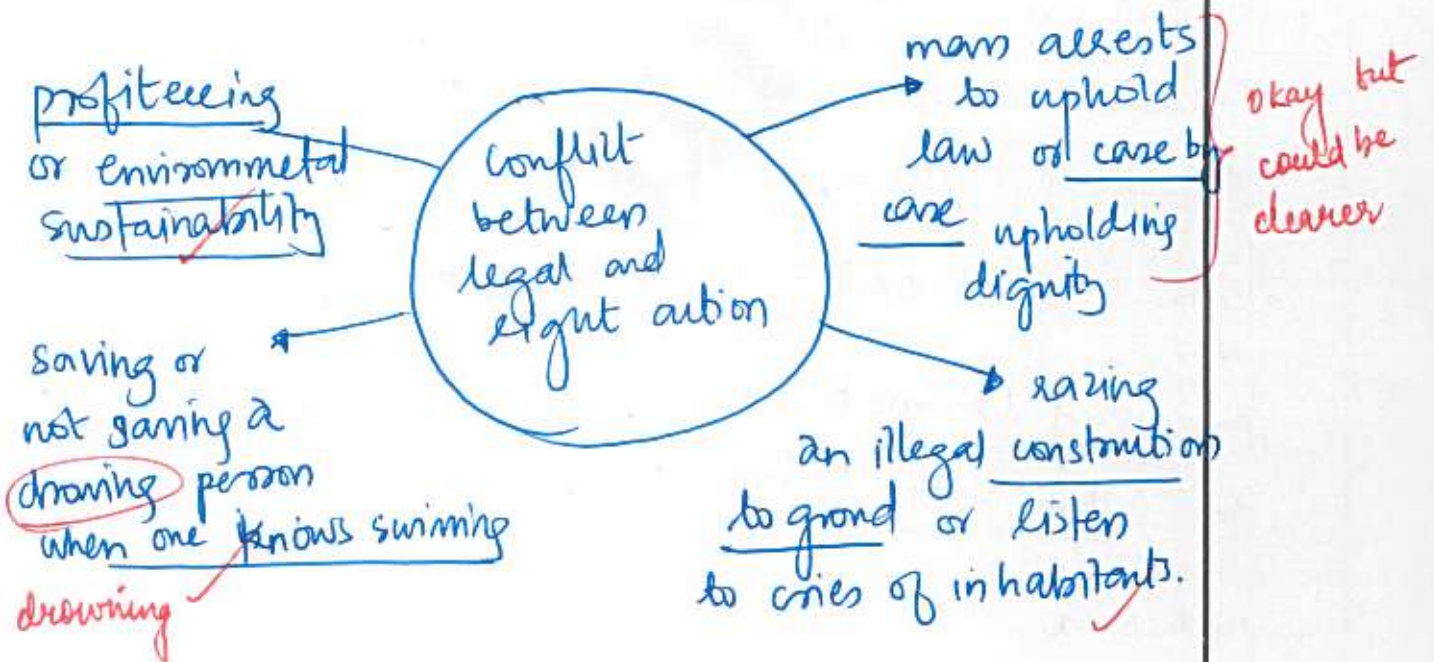 profiteering
or environmetal
sustainability
conflict
between
legal and
right action
mass arrests
to uphold
law or case by
case upholding
dignity
okay but
could be
clearer
saving or
not saving a
drowing person
when one knows swiming
drowning
razing
an illegal construction
to grond or listen
to cries of inhabitants.